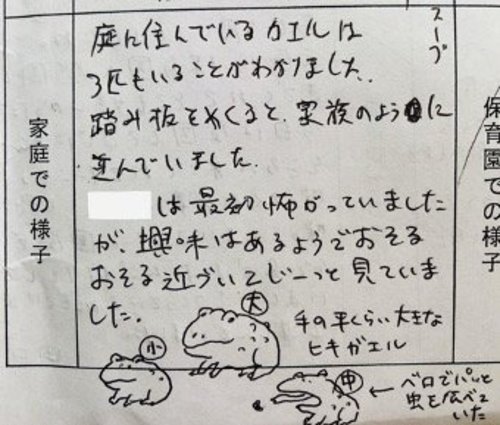 スープ
家庭での様子
庭に住んでいるカエルは
3匹もいることがわかりました。
踏み板をめくると、家族のように
並んでいました。
は最初怖がっていました
が、興味はあるようでおそる
おそる近づいてじーっと見ていま
した。
大
小
中
手の平くらい大きな
ヒキガエル
←ベロでパッと
虫を食べて
いた
保育園での様子